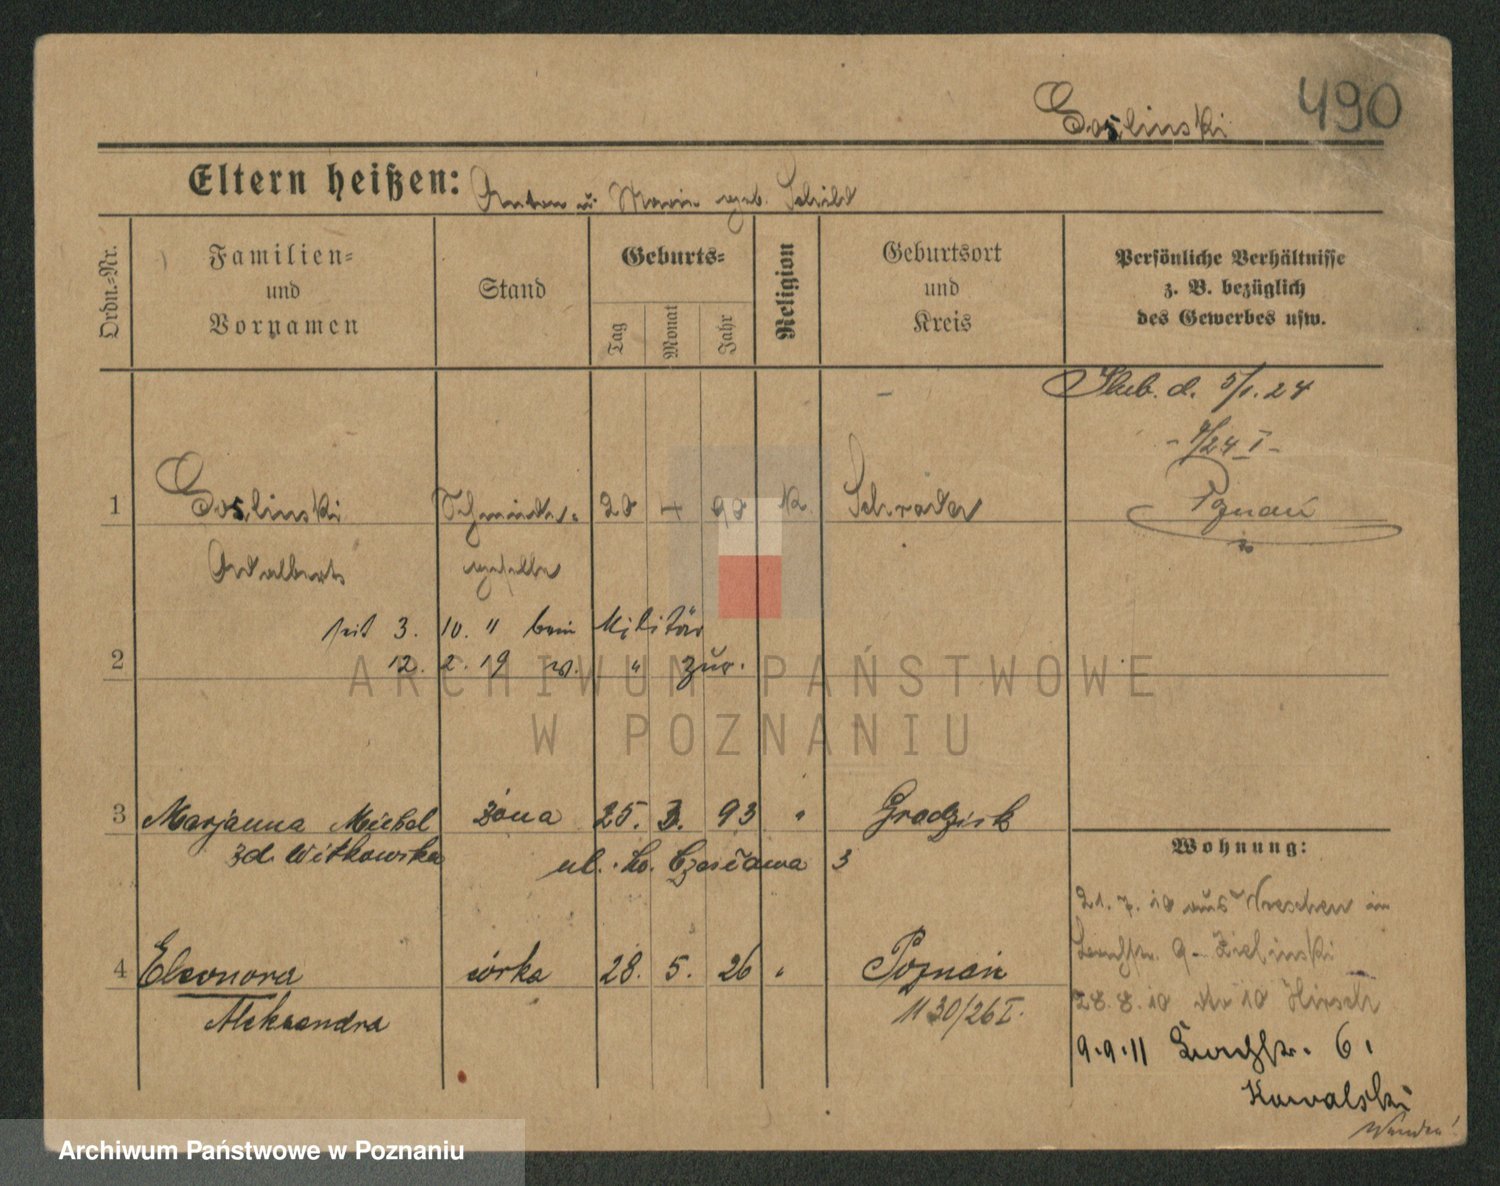 490
Goslinski
Eltern heißen: Anton u. Marie geb. Schild
Ordn.-Nr.
Familien-
und
Vornamen
Stand
Geburts-
Tag
Monat
Jahr
Religion
Geburtsort
und
Kreis
Persönliche Verhältnisse
z. B. bezüglich
des Gewerbes usw.
Ślub. d. 5/1. 24
- 9/24 I -
Poznań
1 Goslinski Schneider- 28 4 98 K. Schroda
Adalbert geselle
seit 3. 10. " beim Militär
2 12. 2. 19 v. " zur.
3 Marjanna Michel żona 25. 3. 93 " Grodzisk
zd. Witkowska ul. św. Czesława 3
4 Eleonora córka 28. 5. 26 " Poznań
Aleksandra 1130/26 I.
Wohnung:
21. 7. 10 aus Wreschen in
9 - Zielinski
28. 8. 10 No 10 Hirsch
9. 9. 11 6.
Kowalski
ARCHIWUM PAŃSTWOWE
W POZNANIU
Archiwum Państwowe w Poznaniu